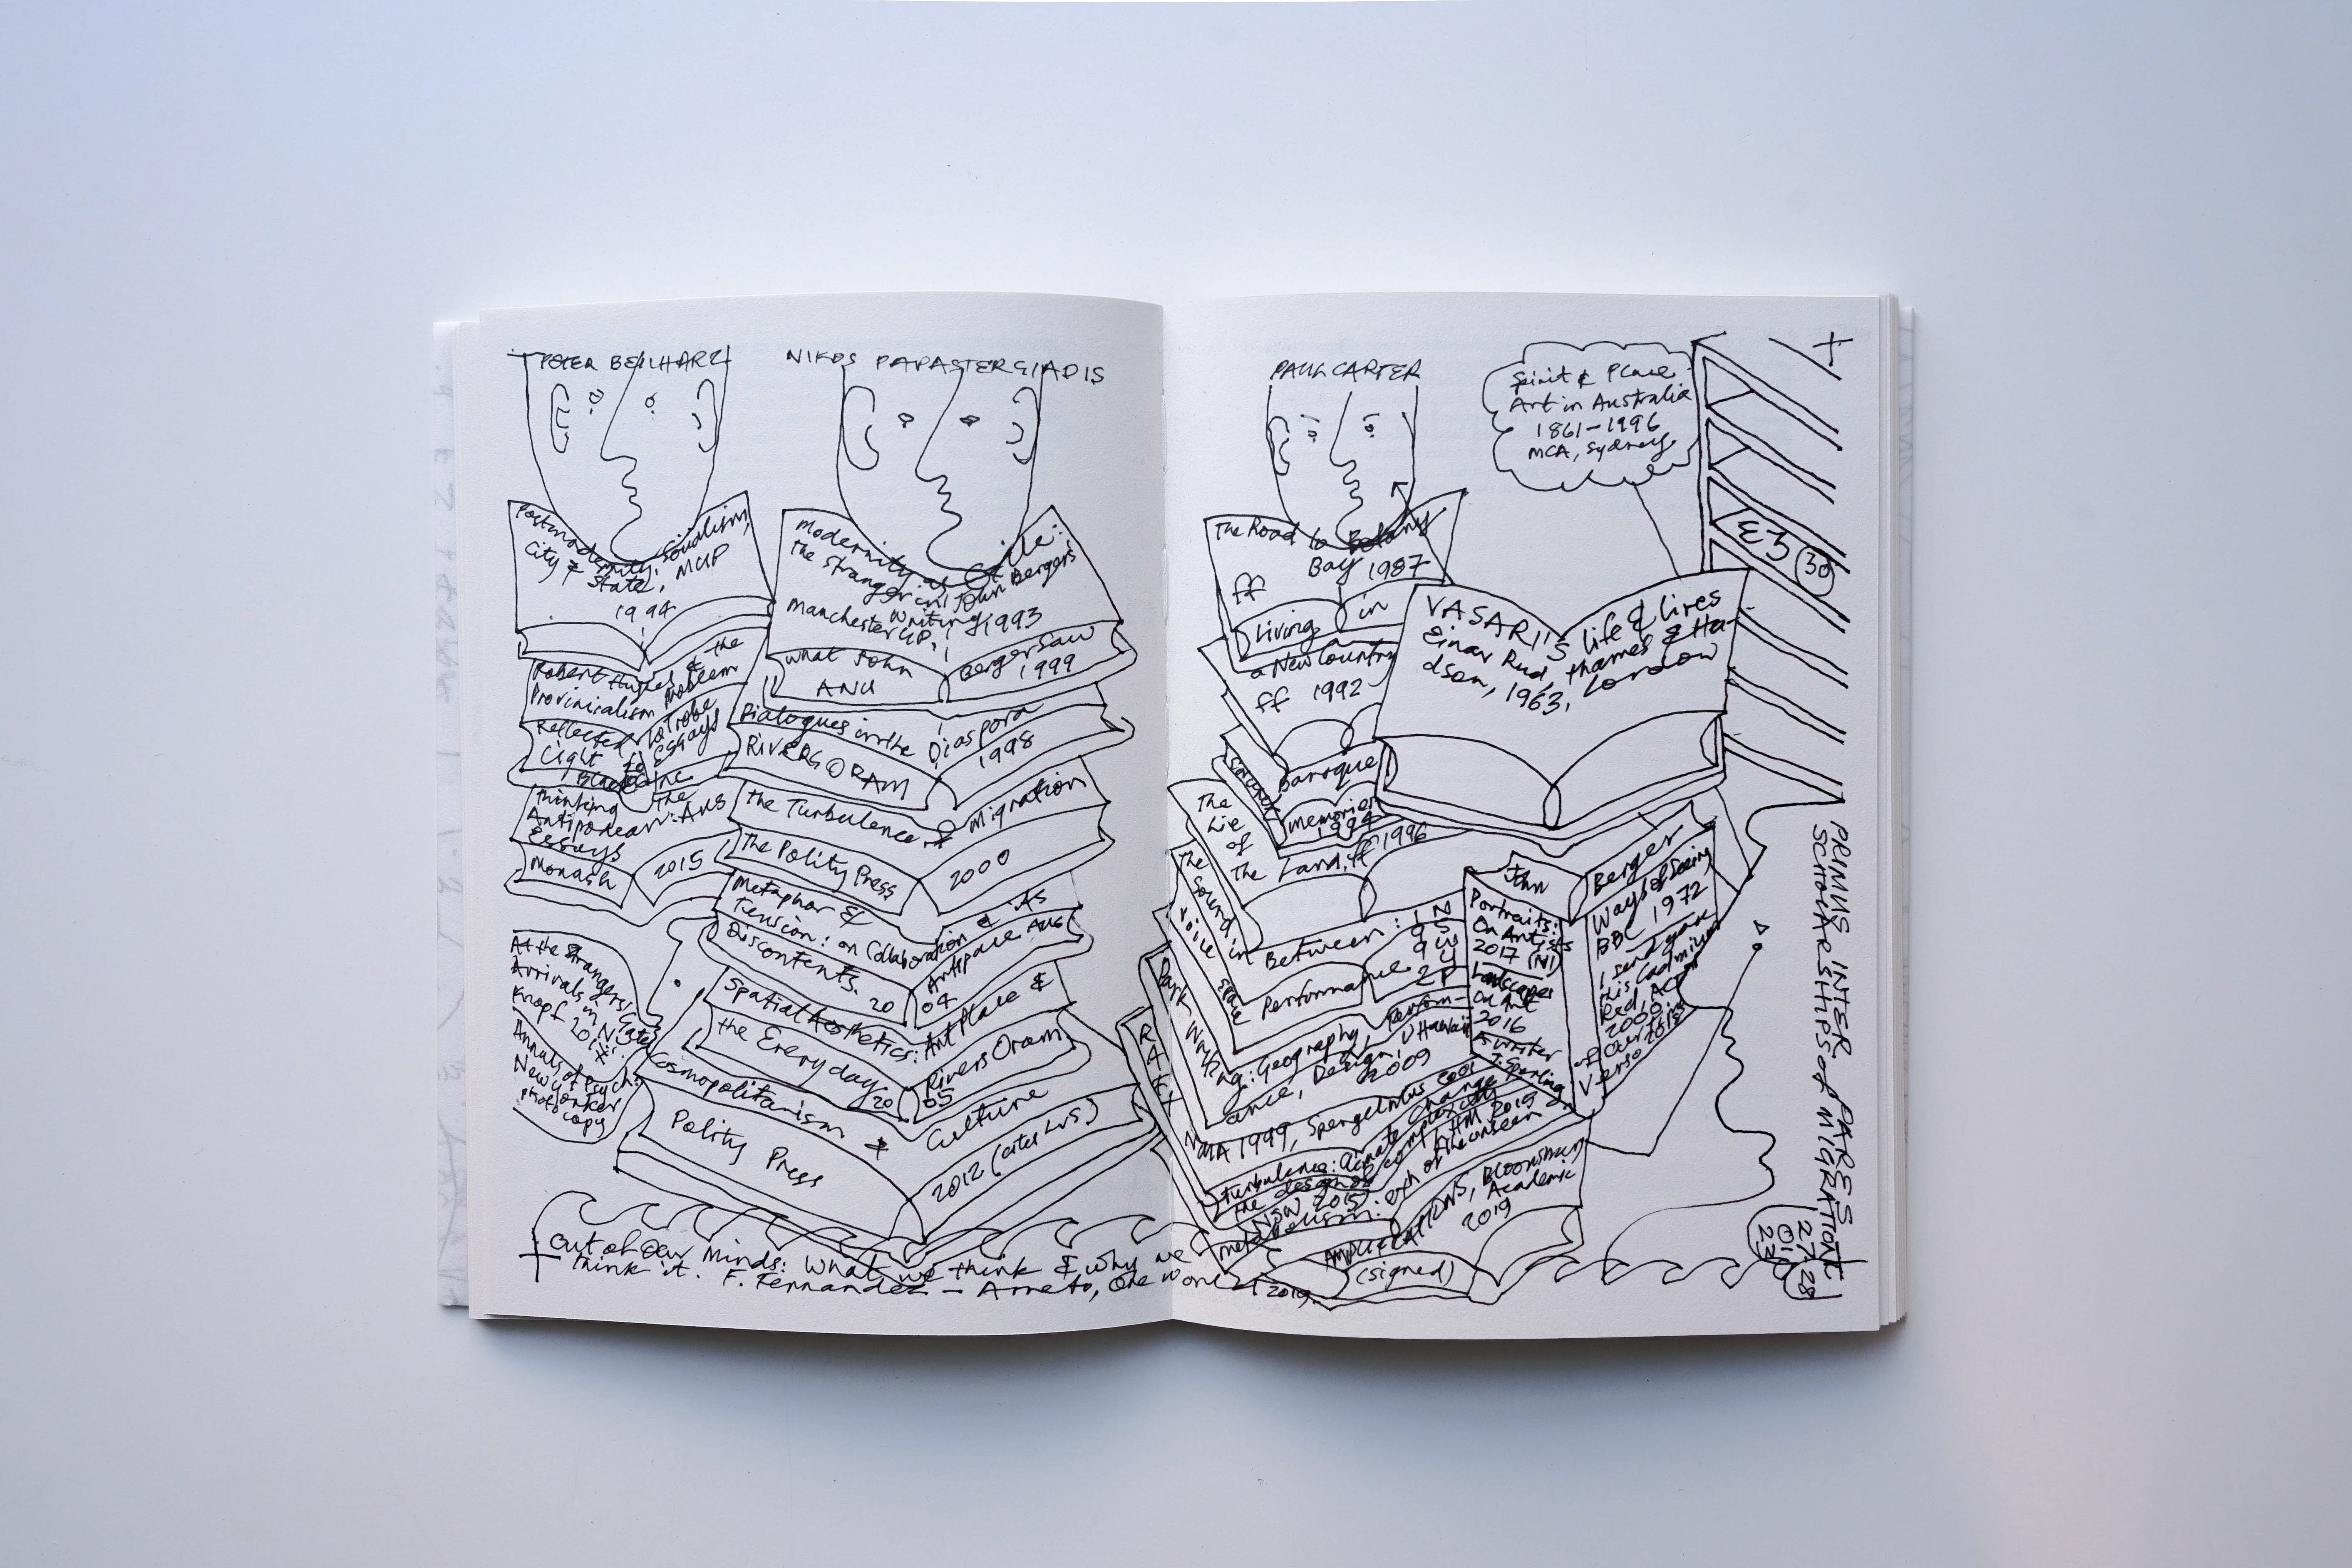 PETER BEILHARZ
NIKOS PAPASTERGIADIS
Postmodernity, Socialism,
City &
State, MUP
1994
Robert Hughes & the
Provincialism Problem
Reflected
Light
La Trobe
Essays
Black Inc
Thinking
the
Antipodean: Aus
Essays
Monash
2015
At the Strangers' Gate
Arrivals in N.Y.
Knopf 2017
Annals of Psych:
New Yorker
photocopy
Modernity as Exile:
the Stranger in John Berger's
writing
Manchester UP, 1993
What John
Berger Saw
ANU
1999
Dialogues in the Diaspora
RIVERS ORAM
1998
The Turbulence of Migration
The Polity Press
2000
Metaphor &
Tension: on Collaboration & its
Discontents. 20
04
Artspace Aus
Spatial Aesthetics: Art Place &
the Everyday 20
05
Rivers Oram
Cosmopolitanism & Culture
Polity Press
2012
out of our Minds: What we think & why we
think it. F. Fernandez-Armesto, One World 2019
PAUL CARTER
Spirit & Place
Art in Australia
1861-1996
MCA, Sydney
The Road to Botany
Bay 1987
ff
Living in
a New Country
ff 1992
VASARI'S life & lives
Einar Rud, thames & Hu-
dson, 1963, London
Baroque
Memories
1994
The
Lie
of
The Land, ff 1996
The
Sound in
Between:
voice
space
Performance
Dark Writing: Geography, Perform-
ance, Design, U Hawaii
2009
RAFT
NMA 1999,
Turbulence: Climate Change
the design of complexity
NSW 2015
Metabolism: exh of the unseen
AMPLIFICATIONS, Bloomsbury
Academic
2019
(signed)
John
Berger
Portraits:
On Artists
2017
Landscapes
On Art
2016
A writer
J. Sperling
Ways of Seeing
BBC 1972
I send you
this Cadmium
Red, ACTAR
2000
of our time
Verso
£3
30
PRIMUS INTER PARES
SCHOLARSHIPS of MIGRATION